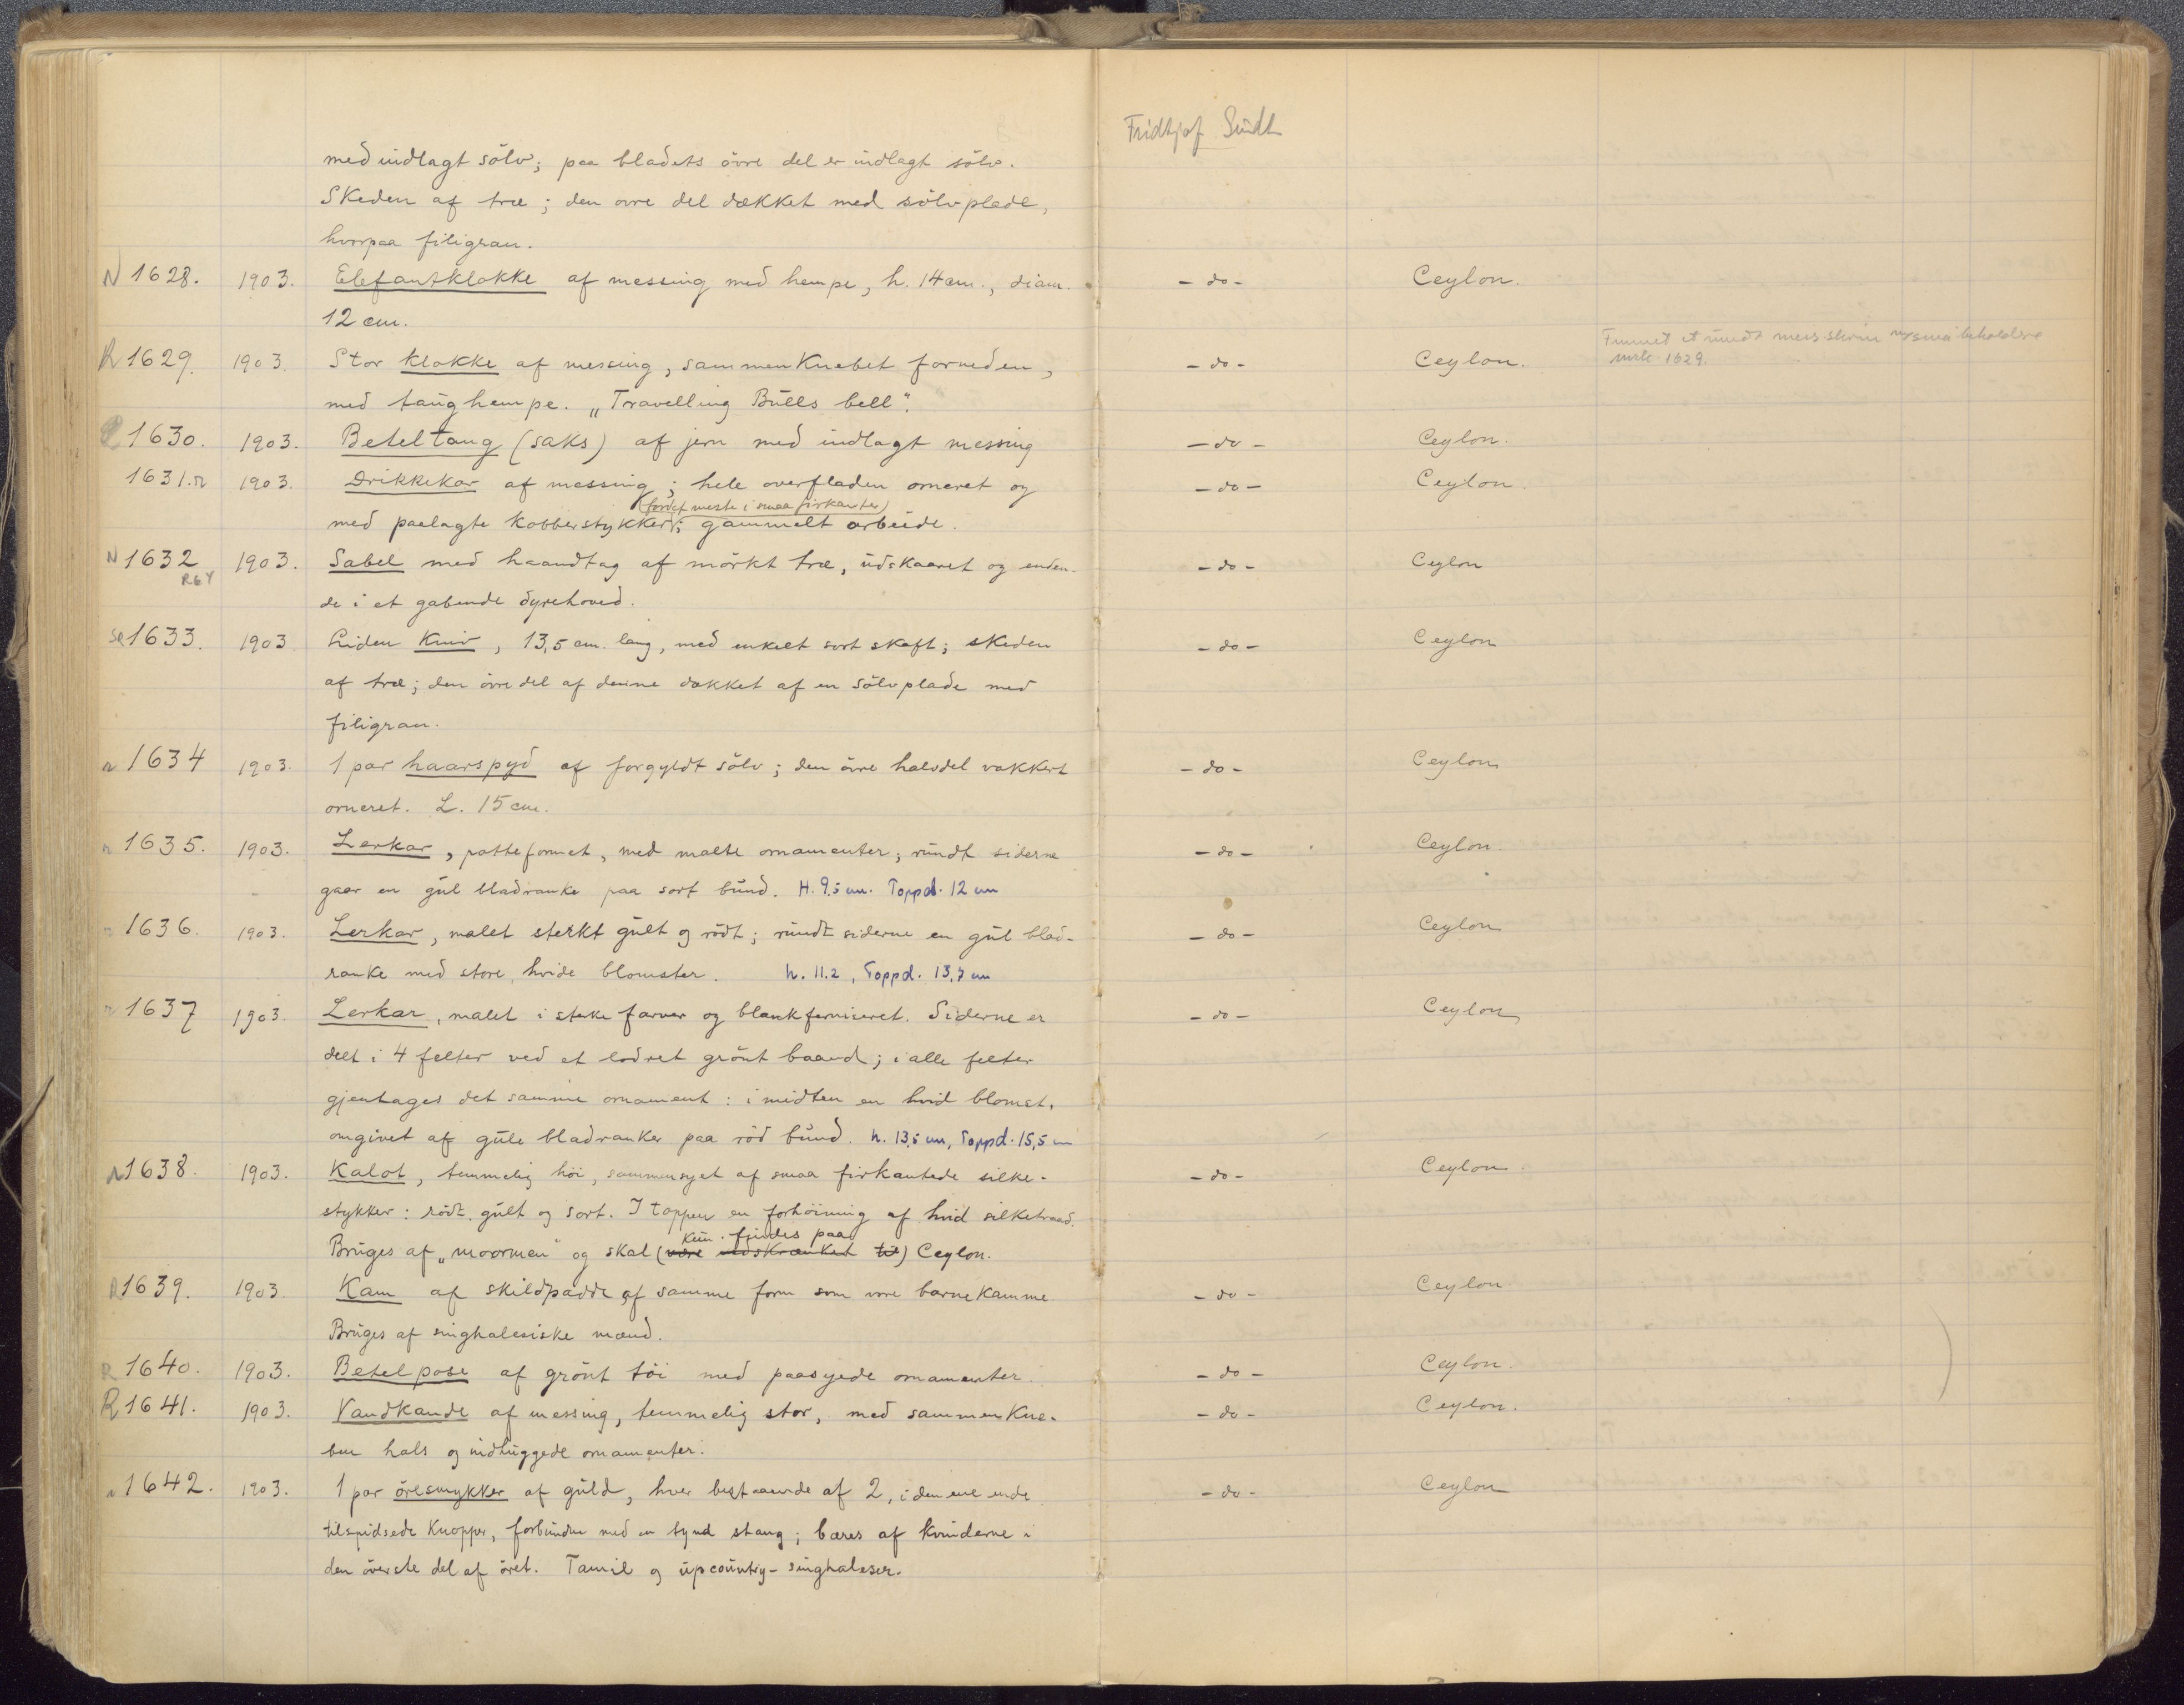 Fridtjof Sundt
med indlagt sölv; paa bladets övre del er indlagt sölv.
Skeden af træ; den ovre del dækket med sölvplade,
hvorpaa filigran.
N 1628. 1903. Elefantklokke af messing med hempe, h. 14 cm., diam. - do - Ceylon.
12 cm.
R 1629. 1903. Stor klokke af messing, sammenknebet forneden, - do - Ceylon. Funnet et rundt mess skrin m/små beholdere
mrk. 1629.
med taughempe. „Travelling Bulls bell".
R 1630. 1903. Beteltang (saks) af jern med indlagt messing - do - Ceylon.
1631. R 1903. Drikkekar af messing; hele overfladen orneret og - do - Ceylon.
(fordet meste i smaa firkanter)
med paalagte kobberstykker; gammelt arbeide.
N 1632 1903. Sabel med haandtag af mörkt træ, udskaaret og enden- - do - Ceylon
R64
de i et gabende dyrehoved.
se 1633. 1903 Liden kniv, 13,5 cm. lang, med enkelt sort skaft; skeden - do - Ceylon
af træ; den övre del af denne dækket af en sölvplade med
filigran.
n 1634 1903. 1 par haarspyd af forgyldt sölv; den övre halvdel vakkert - do - Ceylon
orneret. L. 15 cm.
n 1635. 1903. Lerkar, potteformet, med malte ornamenter; rundt siderne - do - Ceylon.
gaar en gul bladranke paa sort bund. H. 9,5 cm. Toppd. 12 cm
1636. 1903. Lerkar, malet sterkt gult og rödt; rundt siderne en gul blad- - do - Ceylon
ranke med store, hvide blomster. h. 11.2, Toppd. 13,7 cm
1637 1903. Lerkar, malet i sterke farver og blankferniseret. Siderne er - do - Ceylon
delt i 4 felter ved et lodret grönt baand; i alle felter
gjentages det samme ornament: i midten en hvid blomst,
omgivet af gule bladranker paa röd bund. h. 13,5 cm, Toppd. 15,5 cm
n 1638. 1903. Kalot, temmelig höi, sammensyet af smaa firkantede silke- - do - Ceylon.
stykker: rödt, gult og sort. I toppen en forhöining af hvid silketraad.
kun findes paa
Bruges af „moormen" og skal (være indskrænket til) Ceylon.
R 1639. 1903. Kam af skildpadde af samme form som vore barnekamme - do - Ceylon.
Bruges af singhalesiske mænd.
R 1640. 1903. Betelpose af grönt töi med paasyede ornamenter. - do - Ceylon.
R 1641. 1903. Vandkande af messing, temmelig stor, med sammenkne- - do - Ceylon.
ben hals og indhuggede ornamenter.
n 1642. 1903. 1 par öresmykker af guld, hver bestaaende af 2, i den ene ende - do - Ceylon
tilspidsede knopper, forbundne med en tynd stang; bæres af kvinderne i
den överste del af öret. Tamil og upcountry-singhaleser.